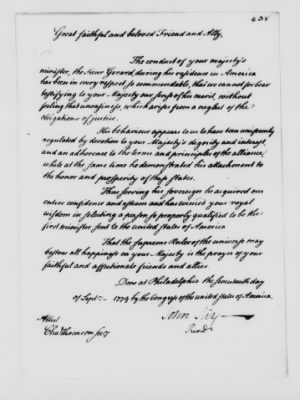 Great faithful and beloved Friend and Ally.
The conduct of your majesty's
minister, the Sieur Gerard, during his residence in America
has been in every respect so commendable, that we cannot forbear
testifying to your Majesty our sense of his merit, without
feeling that uneasiness, which arises from a neglect of the
obligations of justice.
His behaviour appears to us to have been uniformly
regulated by devotion to your Majesty's dignity and interest,
and an adherence to the terms and principles of the alliance,
while at the same time he demonstrated his attachment to
the honor and prosperity of these states.
Thus serving his sovereign he acquired our
entire confidence and esteem and has evinced your royal
wisdom in selecting a person so properly qualified to be the
first minister sent to the united States of America
That the supreme Ruler of the universe may
bestow all happiness on your Majesty is the prayer of your
faithful and affectionate friends and allies
Done at Philadelphia the seventeenth day
of Septr. 1779 by the Congress of the united States of America.
John Jay
Attest
Cha Thomson secy